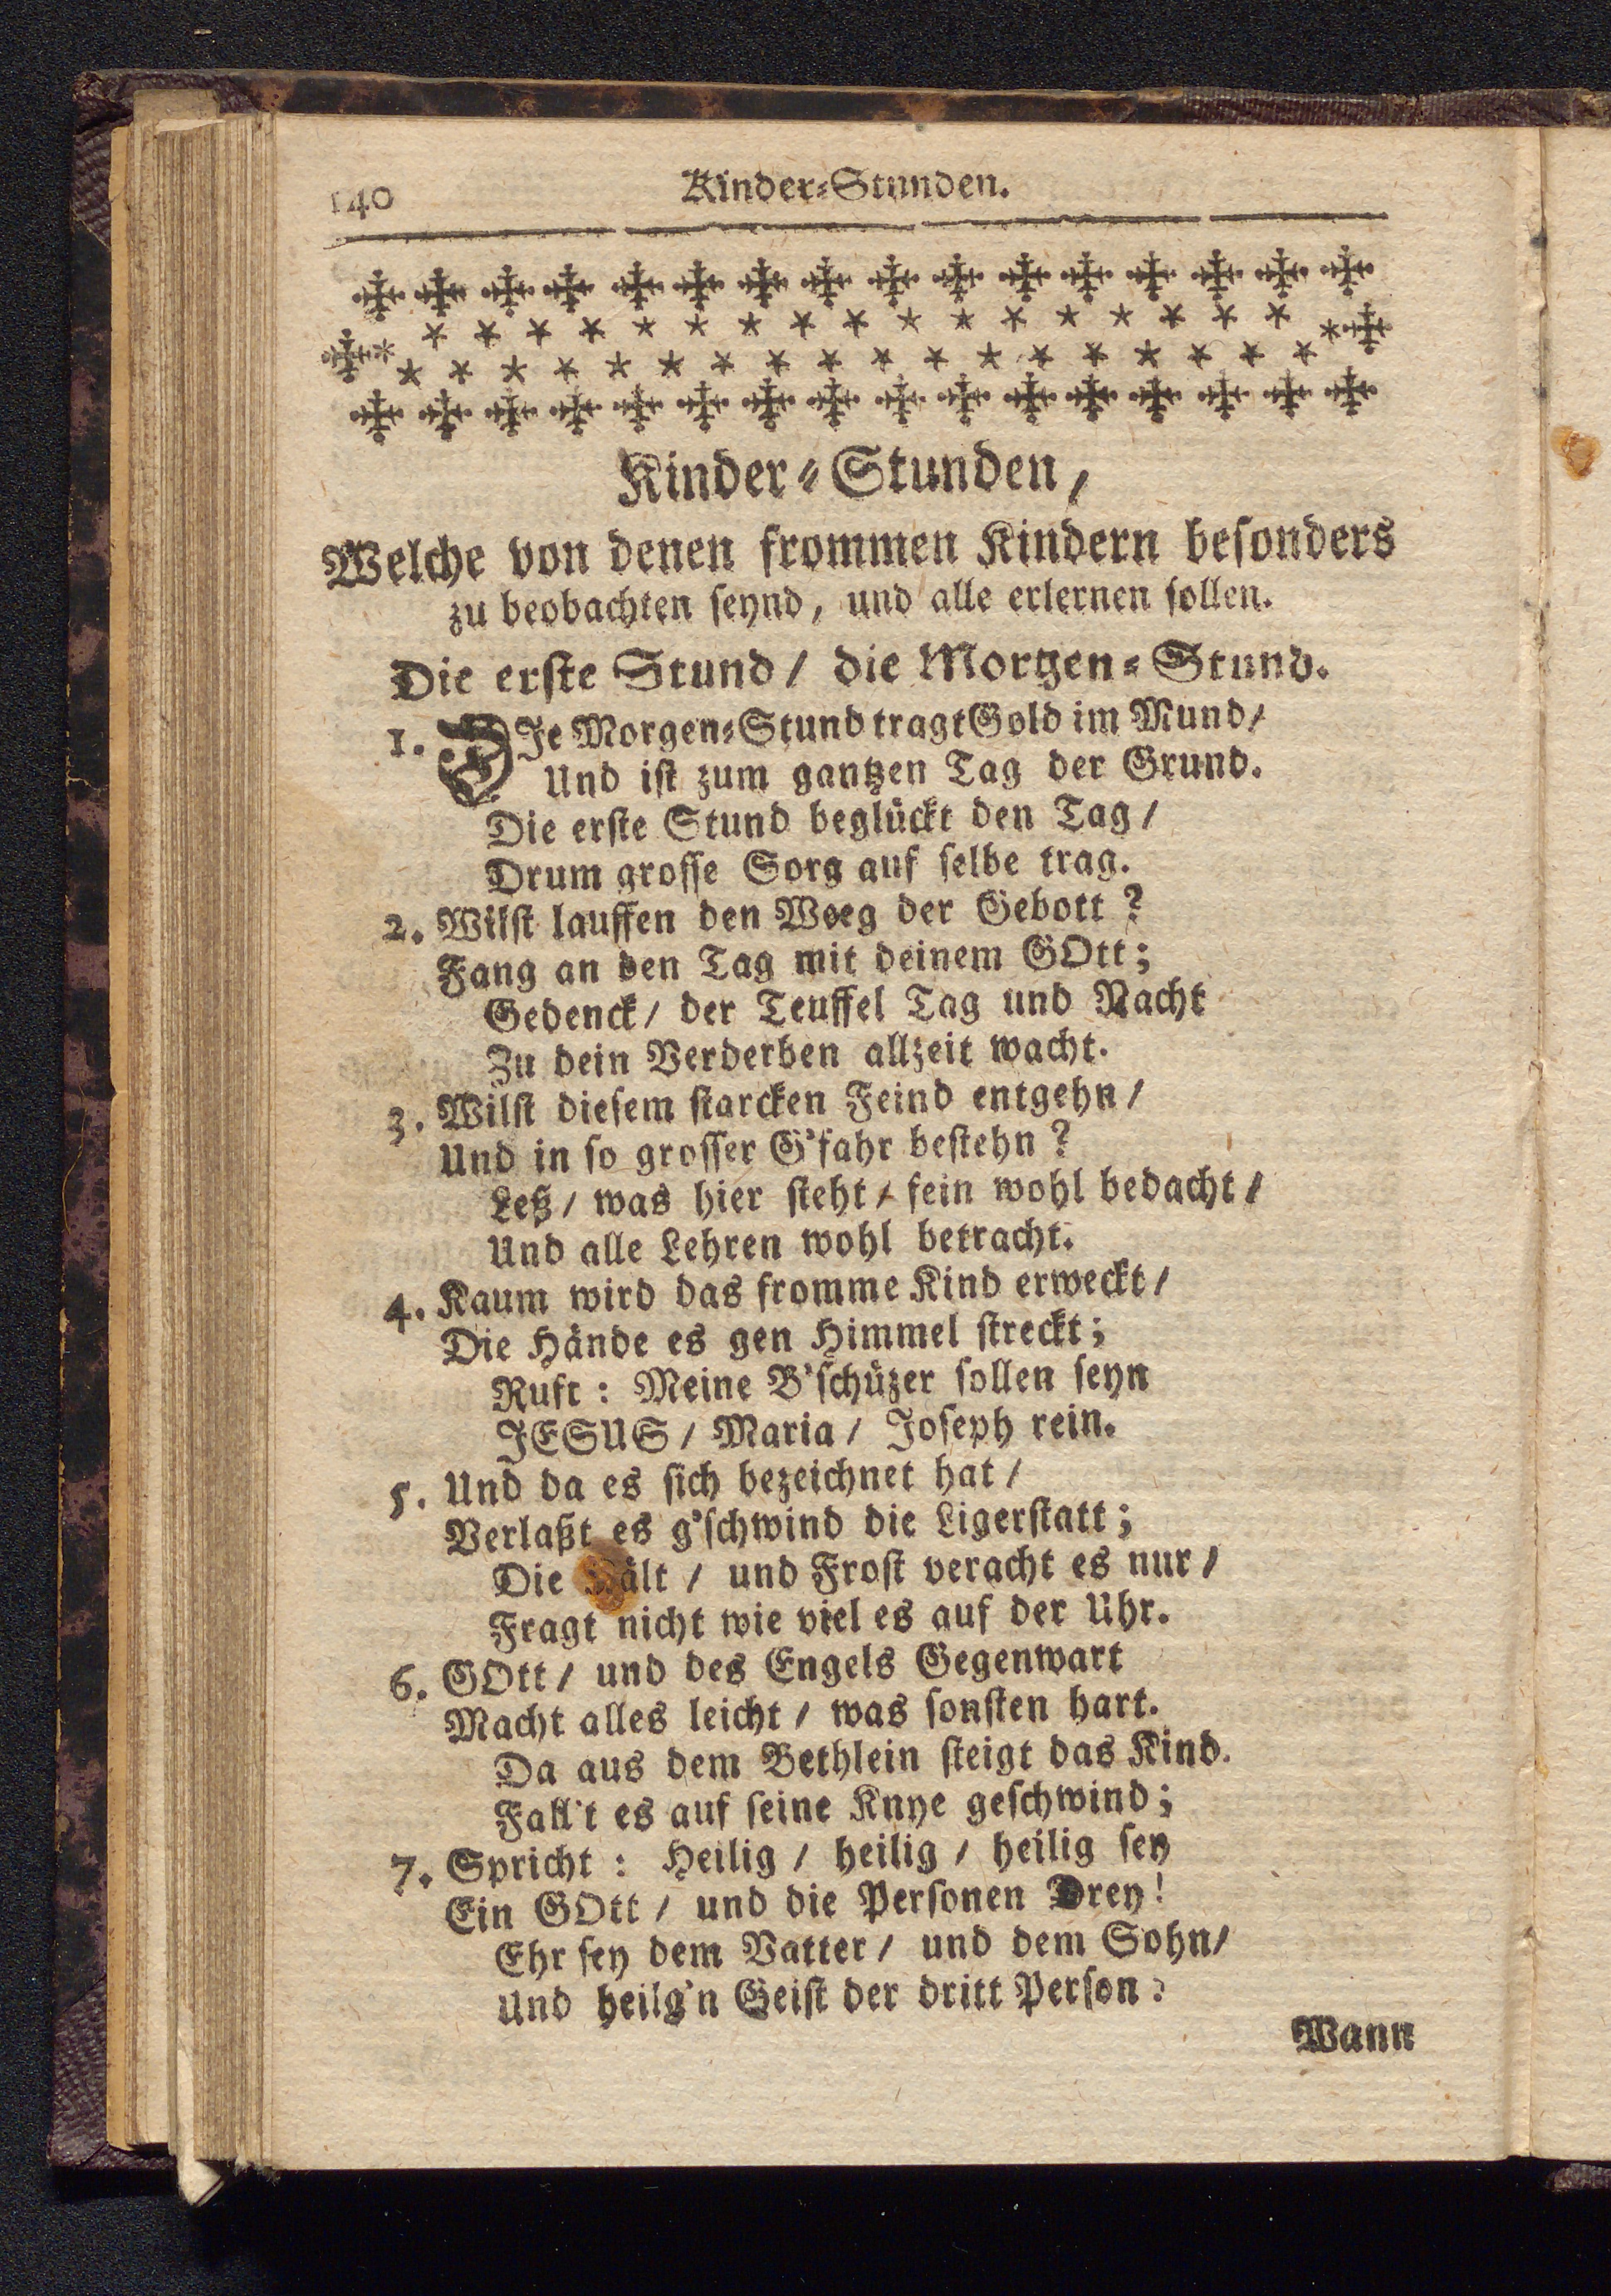 140 Kinder-Stunden.
Kinder-Stunden,
Welche von denen frommen Kindern besonders
zu beobachten seynd, und alle erlernen sollen.
Die erste Stund / die Morgen-Stund.
1. DIe Morgen-Stund tragt Gold im Mund /
Und ist zum gantzen Tag der Grund.
Die erste Stund beglückt den Tag /
Drum grosse Sorg auf selbe trag.
2. Wilst lauffen den Weeg der Gebott ?
Fang an den Tag mit deinem GOtt ;
Gedenck / der Teuffel Tag und Nacht
Zu dein Verderben allzeit wacht.
3. Wilst diesem starcken Feind entgehn /
Und in so grosser G'fahr bestehn ?
Leß / was hier steht / fein wohl bedacht /
Und alle Lehren wohl betracht.
4. Kaum wird das fromme Kind erweckt /
Die Hände es gen Himmel streckt ;
Ruft : Meine B'schützer sollen seyn
JESUS / Maria / Joseph rein.
5. Und da es sich bezeichnet hat /
Verlaßt es g'schwind die Ligerstatt ;
Die Kält / und Frost veracht es nur /
Fragt nicht wie viel es auf der Uhr.
6. GOtt / und des Engels Gegenwart
Macht alles leicht / was sonsten hart.
Da aus dem Bethlein steigt das Kind.
Fall't es auf seine Knye geschwind ;
7. Spricht : Heilig / heilig / heilig sey
Ein GOtt / und die Personen Drey !
Ehr sey dem Vatter / und dem Sohn /
Und heilg'n Geist der dritt Person :
Wann